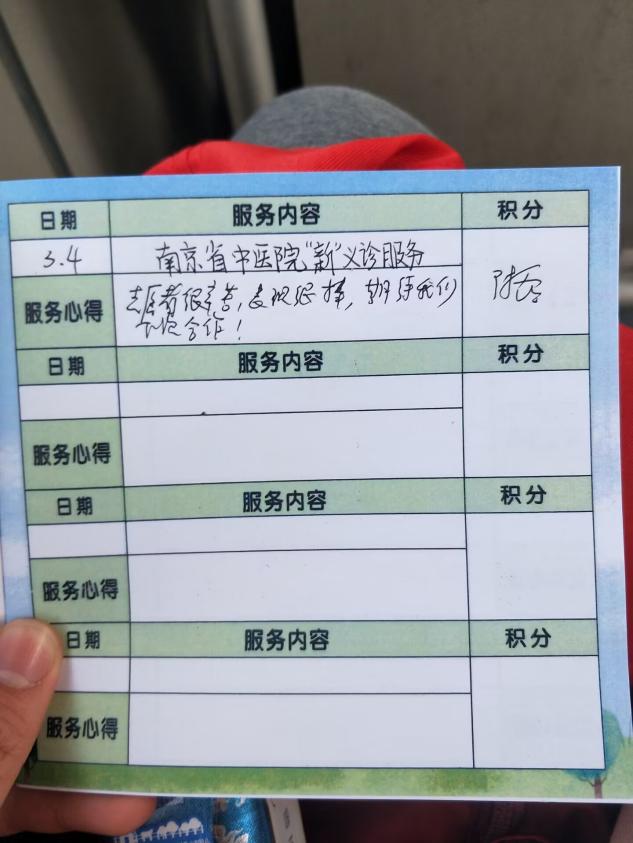 日期 服务内容 积分
3.4 南京省中医院"新"义诊服务
服务心得 志愿者很友善,表现很棒,期待我们
下次合作!
日期 服务内容 积分
服务心得
日期 服务内容 积分
服务心得
日期 服务内容 积分
服务心得